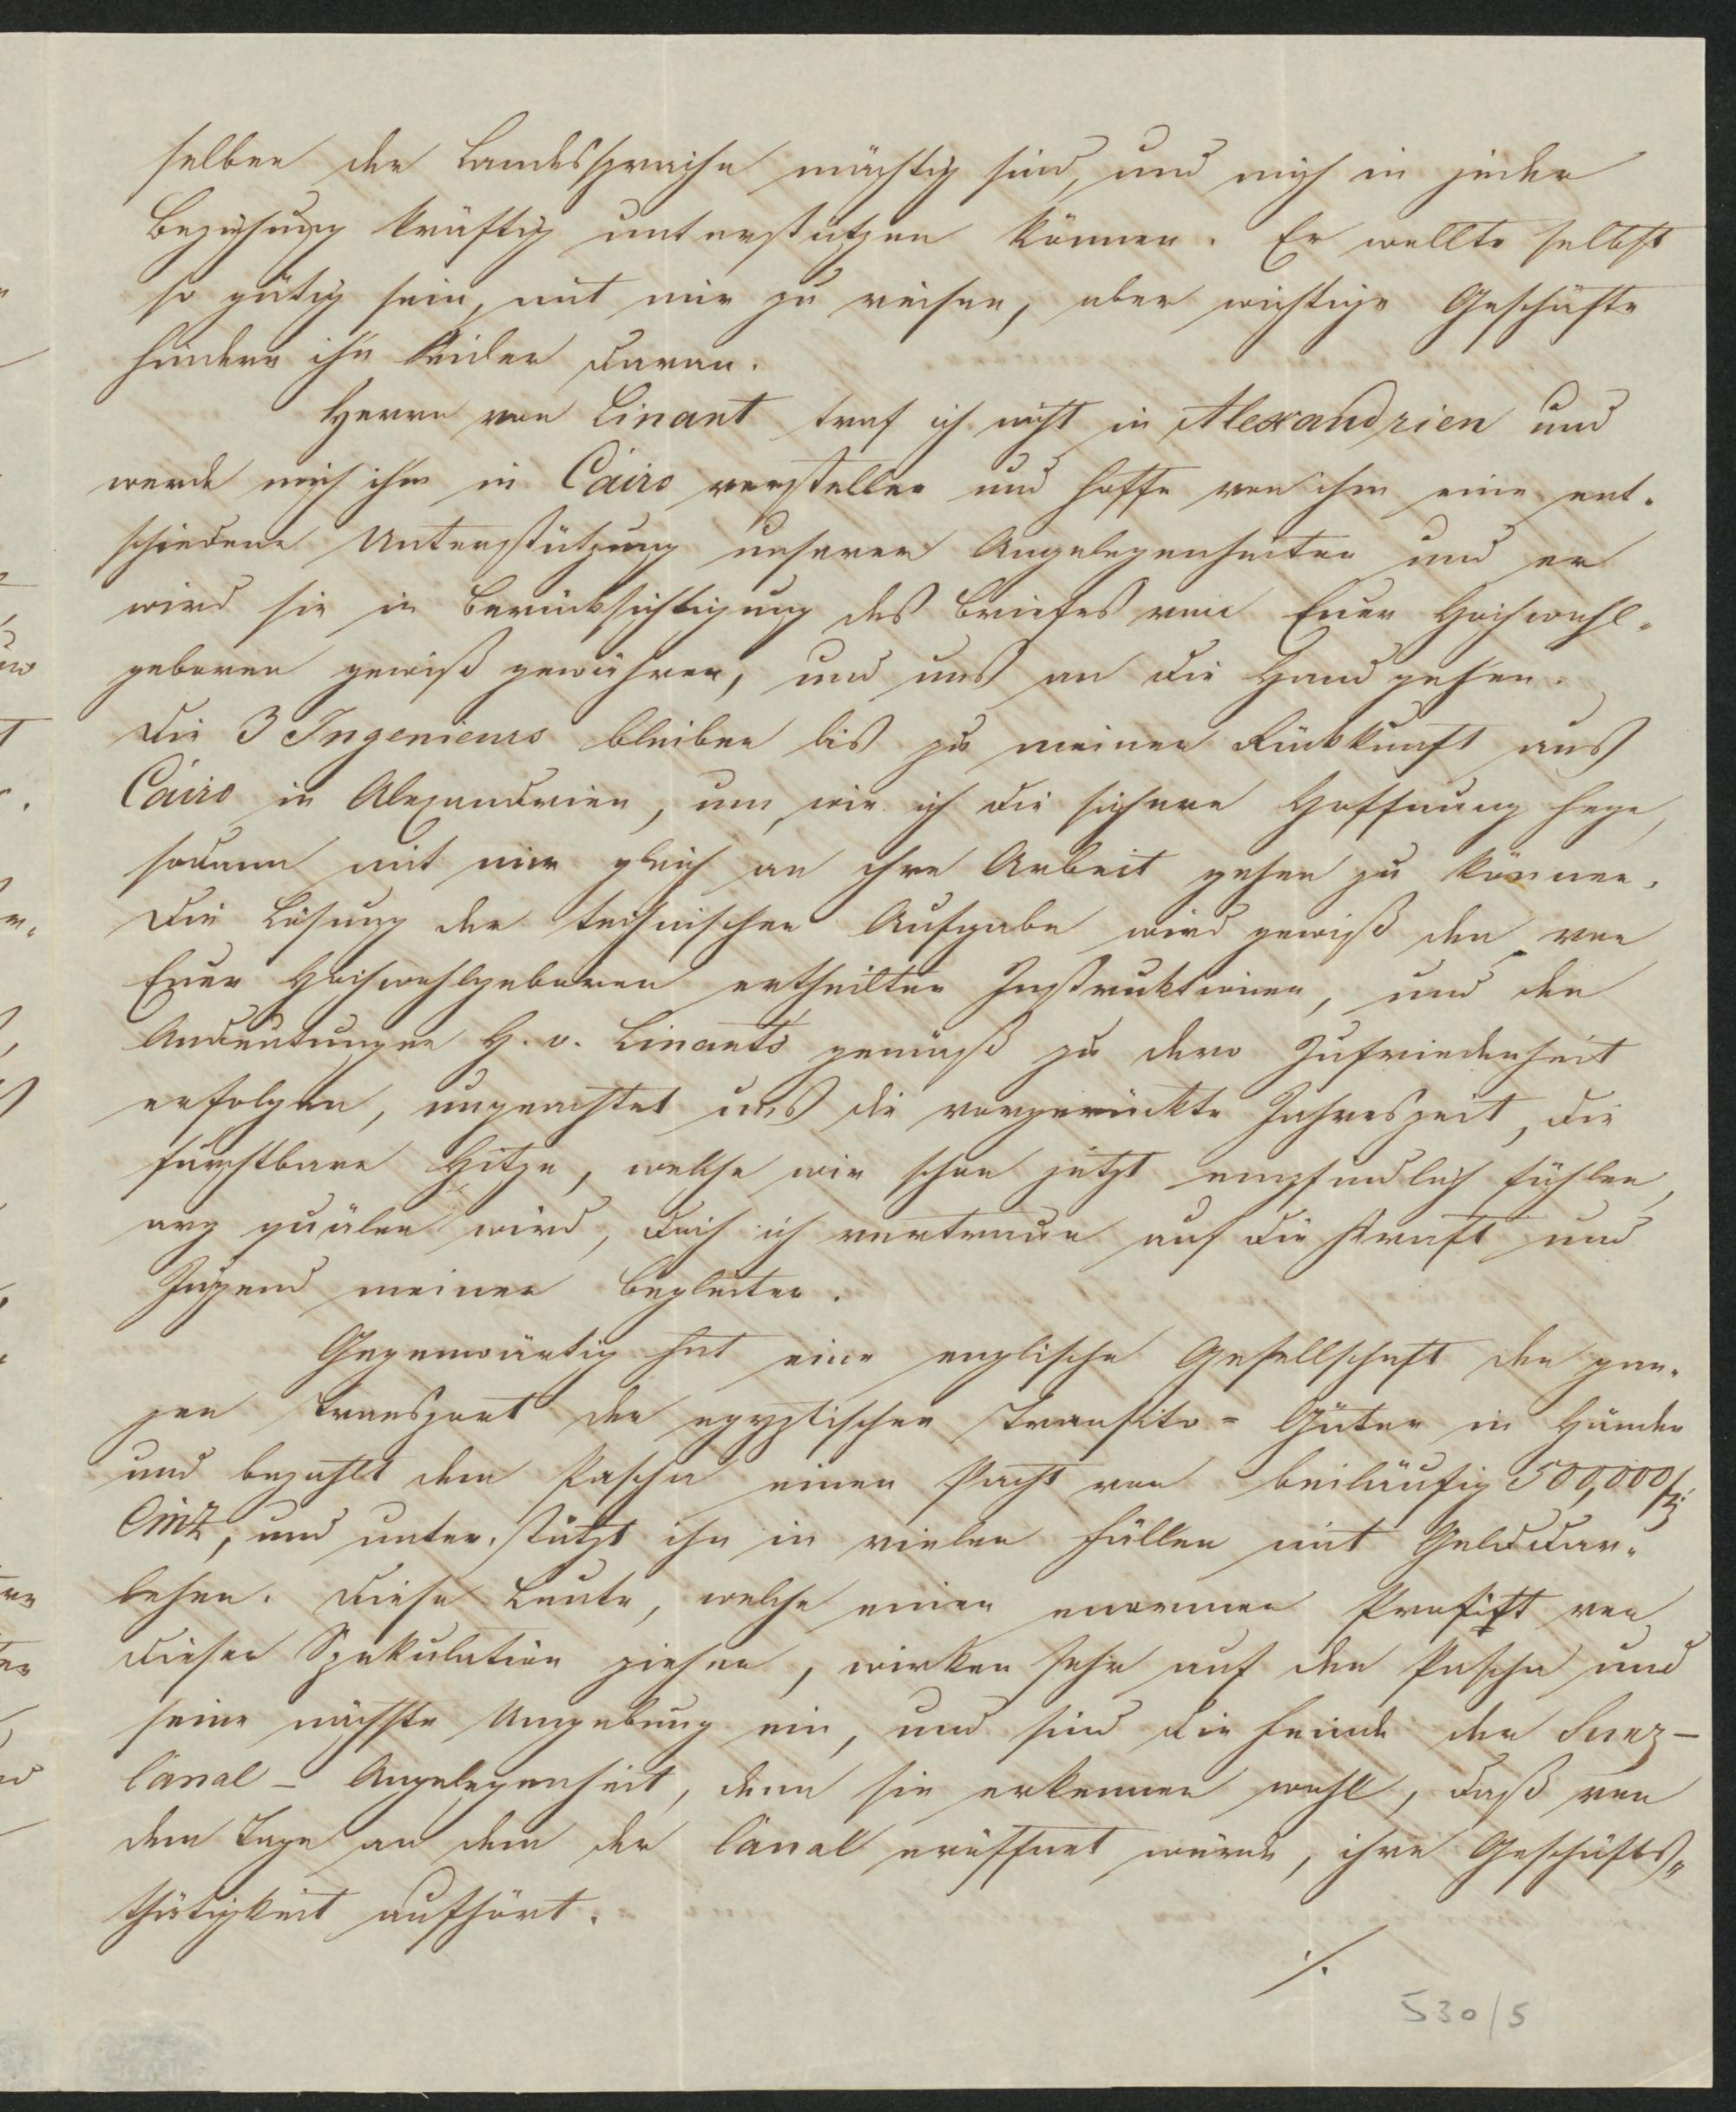 selben der Landessprache mächtig sind, und mich in jeder
Beziehung kräftig unterstützen können. Er wollte selbst
so gütig sein, mit mir zu reisen, aber wichtige Geschäfte
hindern ihn leider daran.
Herrn von Linant traf ich nicht in Alexandrien und
werde mich ihm in Cairo vorstellen und hoffe von ihm eine ent-
schiedene Unterstützung unserer Angelegenheiten und er
wird sie in Berücksichtigung des Briefes von Euer Hochwohl-
geboren gewiß gewähren, und uns an die Hand gehen.
Die 3 Ingenieurs bleiben bis zu meiner Rückkunft aus
Cairo in Alexandrien, um, wie ich die sichere Hoffnung hege,
sodann mit mir gleich an ihre Arbeit gehen zu können.
Die Lösung der technischen Aufgabe wird gewiß den von
Euer Hochwohlgeboren ertheilten Instruktionen, und den
Andeutungen H. v. Linants gemäß zu dero Zufriedenheit
erfolgen, ungeachtet uns die vorgerückte Jahreszeit, die
furchtbare Hitze, welche wir schon jetzt empfindlich fühlen,
arg quälen wird, doch ich vertraue auf die Kraft und
Jugend meiner Begleiter.
Gegenwärtig hat eine englische Gesellschaft den gan-
zen Transport der egyptischen Transito-Güter in Händen
und bezahlt dem Pascha einen Pacht von beiläufig 500,000
CMz, und unterstützt ihn in vielen Fällen mit Gelddar-
lehen. Diese Leute, welche einen enormen Profitt von
dieser Spekulation ziehen, wirken sehr auf den Pascha und
seine nächste Umgebung ein, und sind die Feinde der Suez-
Canal-Angelegenheit, denn sie erkennen wohl, daß von
dem Tage an dem der Canal eröffnet würde, ihre Geschäfts-
thätigkeit aufhört.
./.
530/5